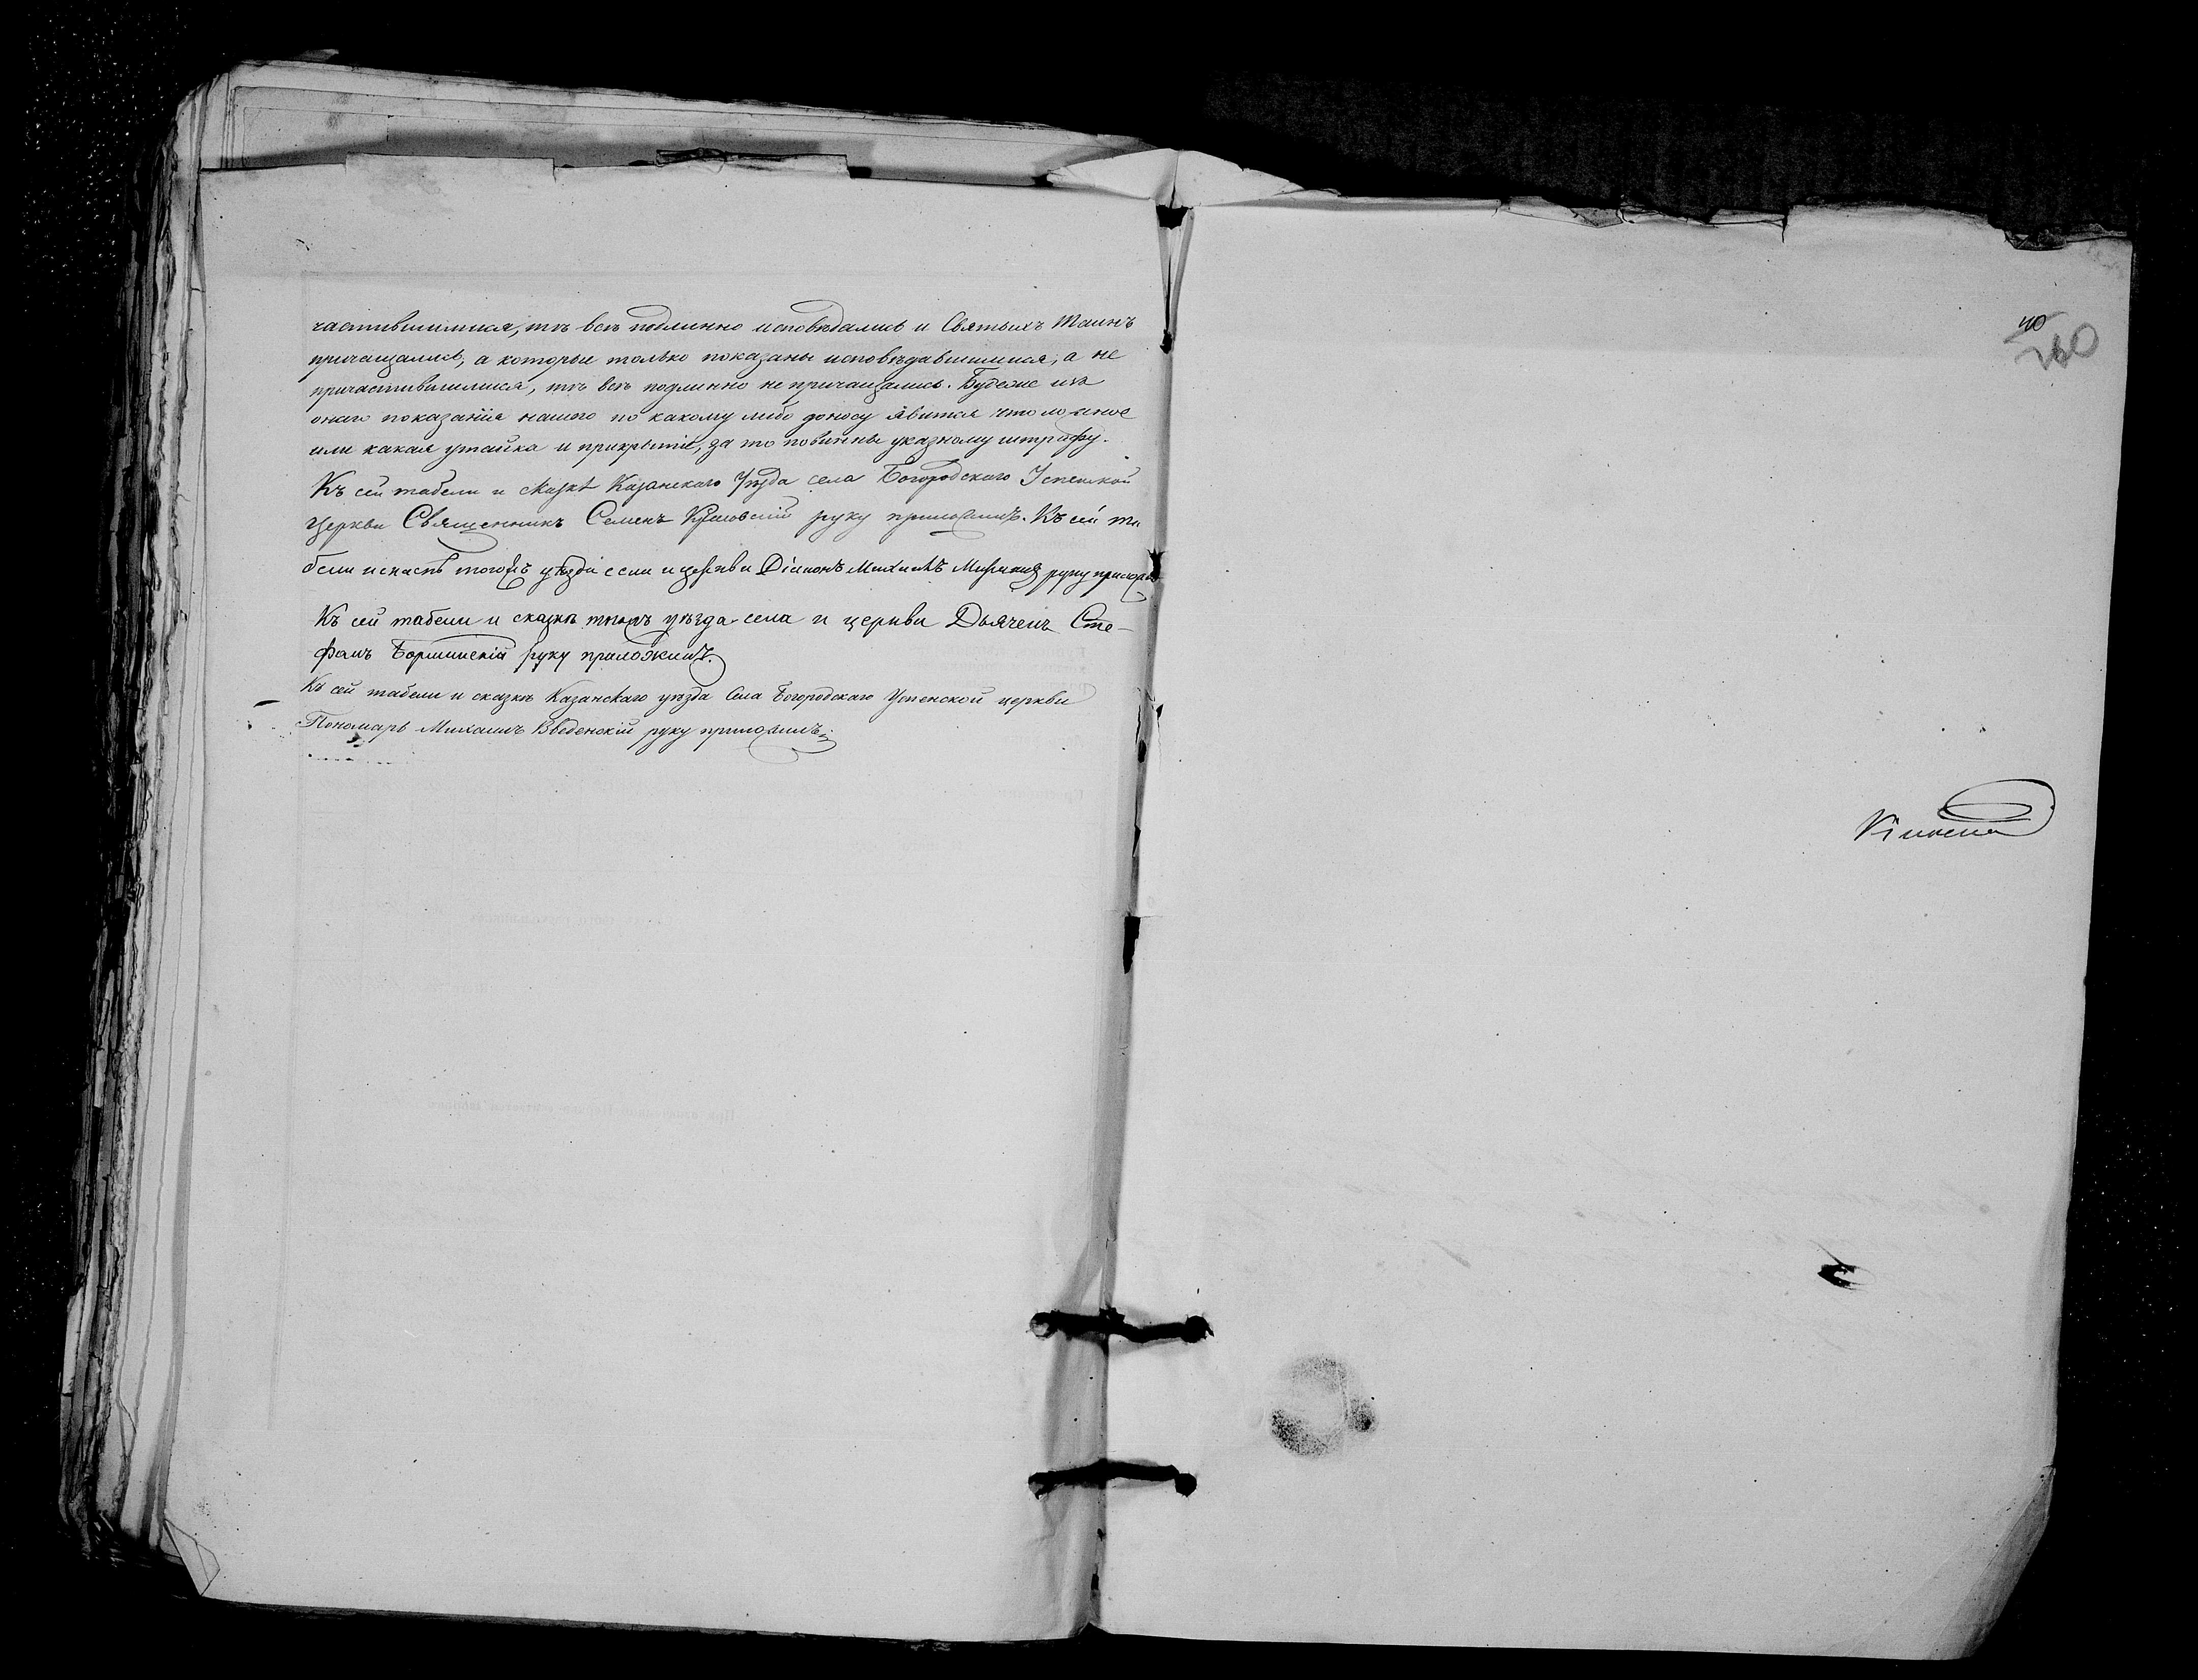 частившимися, тѣ всѣ подлинно исповѣдались и Святыхъ Таинъ
причащались, а которые только показаны исповѣдавшимися, а не
причастившимися, тѣ всѣ подлинно не причащались. Будеже изъ
онаго показанія нашего по какому либо доносу явится что ложное
или какая утайка и прикрытіе, за то повинны указному штрафу.
Къ сей табели и сказкѣ Казанскаго Уѣзда села Богородскаго Успенской
церкви Священникъ Семенъ руку приложилъ. Къ сей та
бели и сказкѣ тогожъ уѣзда села и церкви Діаконъ Михаилъ руку прилож
Къ сей табели и сказкѣ тогожъ уѣзда села и церкви Дьячекъ Сте-
фанъ руку приложилъ.
Къ сей табели и сказкѣ Казанскаго уѣзда Села Богородскаго Успенской церкви
Пономарь Михаилъ Введенскій руку приложилъ.
40
260